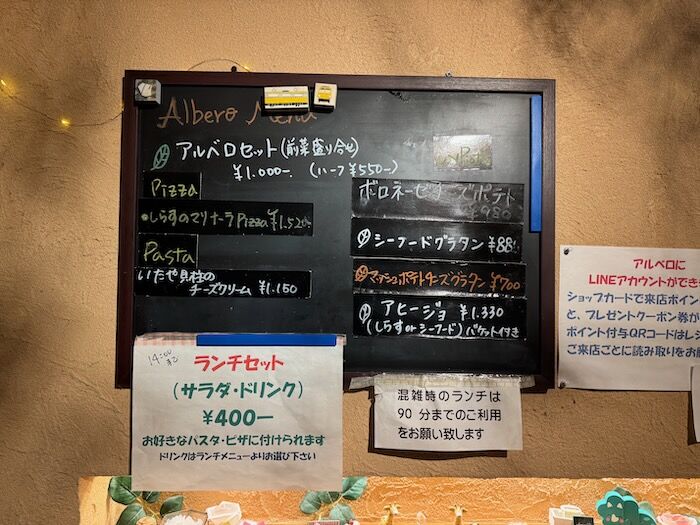 Albero Menu
アルベロセット(前菜盛り合せ)
¥1.000-. (ハーフ ¥550-)
Pizza
・しらすのマリナーラPizza ¥1.520-
Pasta
いたや貝柱の
チーズクリーム ¥1.150
ボロネーゼチーズポテト
¥980
シーフードグラタン ¥88
マッシュポテトチーズグラタン ¥700
アヒージョ ¥1.330
(しらす or シーフード) バケット付き
14:00まで
ランチセット
(サラダ・ドリンク)
¥400ー
お好きなパスタ・ピザに付けられます
ドリンクはランチメニューよりお選び下さい
混雑時のランチは
90 分までのご利用
をお願い致します
アルベロに
LINEアカウントができ
ショップカードで来店ポイン
と、プレゼントクーポン券が
ポイント付与QRコードはレシ
ご来店ごとに読み取りをお